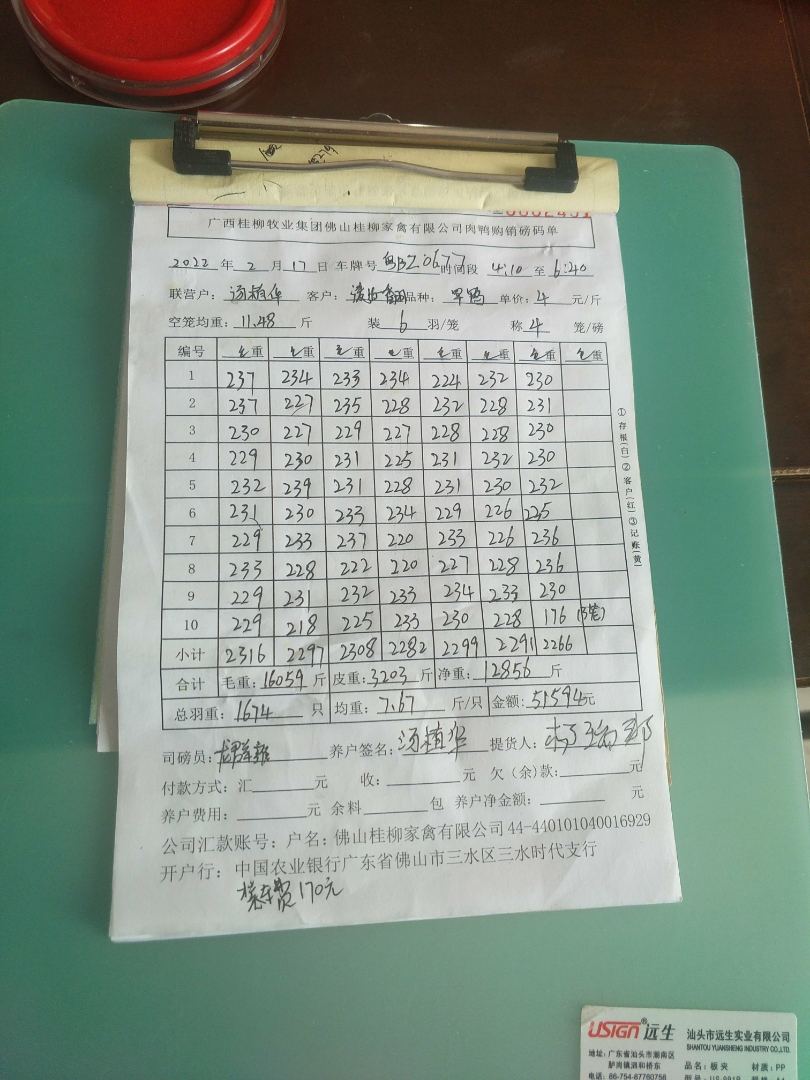 8279
0002451
广西桂柳牧业集团佛山桂柳家禽有限公司肉鸭购销磅码单
2022 年 2 月 17 日 车牌号 粤BZ0677 时间段 4:10 至 6:40
联营户: 汤植华 客户: 品种: 单价: 4 元/斤
空笼均重: 11.48 斤 装 6 羽/笼 称 4 笼/磅
编号 毛重 毛重 毛重 毛重 毛重 毛重 毛重 毛重
1 237 234 233 234 224 232 230
2 237 227 235 228 232 228 231
3 230 227 229 227 228 228 230
4 229 230 231 225 231 232 230
5 232 239 231 228 231 230 232
6 231 230 233 234 229 226 225
7 229 233 237 220 233 226 236
8 233 228 222 220 227 228 236
9 229 231 232 233 234 233 230
10 229 218 225 233 230 228 176 (3笼)
小计 2316 2297 2308 2282 2299 2291 2266
合计 毛重: 16059 斤 皮重: 3203 斤 净重: 12856 斤
总羽重: 1674 只 均重: 7.67 斤/只 金额: 51594元
①存根(白)②客户(红)③记账(黄)
司磅员: 养户签名: 汤植华 提货人:
付款方式: 汇 元 收: 元 欠(余)款: 元
养户费用: 元 余料 包 养户净金额: 元
公司汇款账号: 户名: 佛山桂柳家禽有限公司 44-440101040016929
开户行: 中国农业银行广东省佛山市三水区三水时代支行
车费170元
USIGN® 远生 汕头市远生实业有限公司
SHANTOU YUANSHENG INDUSTRY CO.,LTD.
地址: 广东省汕头市潮南区
胪岗镇泗和桥东
品名: 板夹 材质: PP
电话: 86-754-87760756